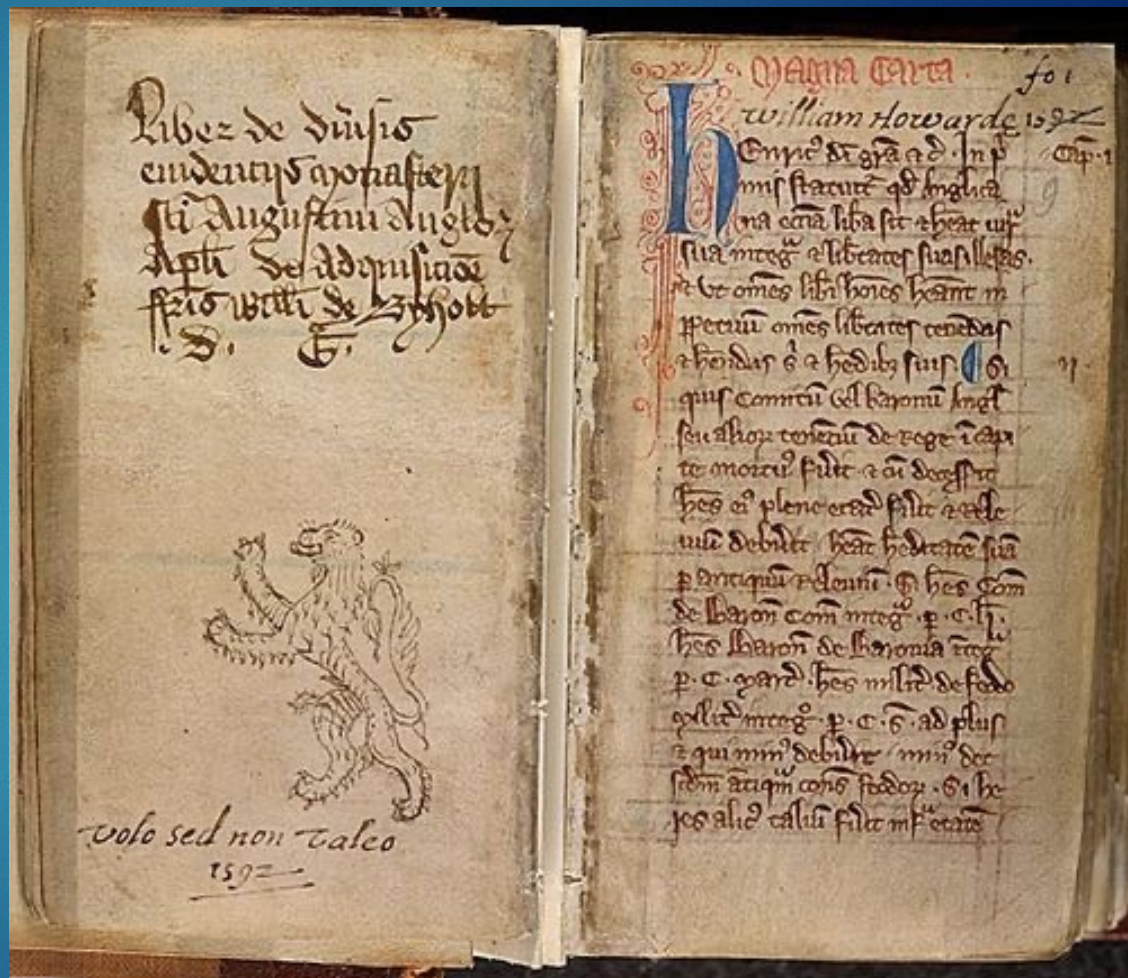 Liber de diūsis
euidencijs monasterij
sci Augustini Angloꝝ
Apli De Adquisicōe
ffris Willi de Byholt
.D. G.
volo sed non valeo
1592
Magna Carta.
fo 1
William Howarde 1592
Henric᷒ di gra ⁊ c̄. In p
Cap. 1
mis statuit qd Anglica
na eccia liba sit ⁊ heat iur
sua integ ⁊ libtates suas illesas.
⁊ Vt omēs libi hoies heant in
ppetuū omēs libtates tenēdas
⁊ hēndas s ⁊ hedibȝ suis. ¶ Si
ij
quis Comitū vel baronū Angl
seu alioꝝ tenēciū de rege ī capi
te mortu᷒ fuit ⁊ cū decessit
hes ei᷒ plene etat fuit ⁊ rele
uiū debuit heat heditatē suā
p antiquū releuiū. Si hes Com
de Baron Com integ. p. C. li.
hes Baron de Baronia īteg
p. C. marc. hes milit de feodo
milit integ. p. C. s. ad plus
⁊ qui min᷒ debuit min᷒ det
scdm atiqm cons feodoꝝ. Si he
res alic᷒ taliū fuit inf etatē